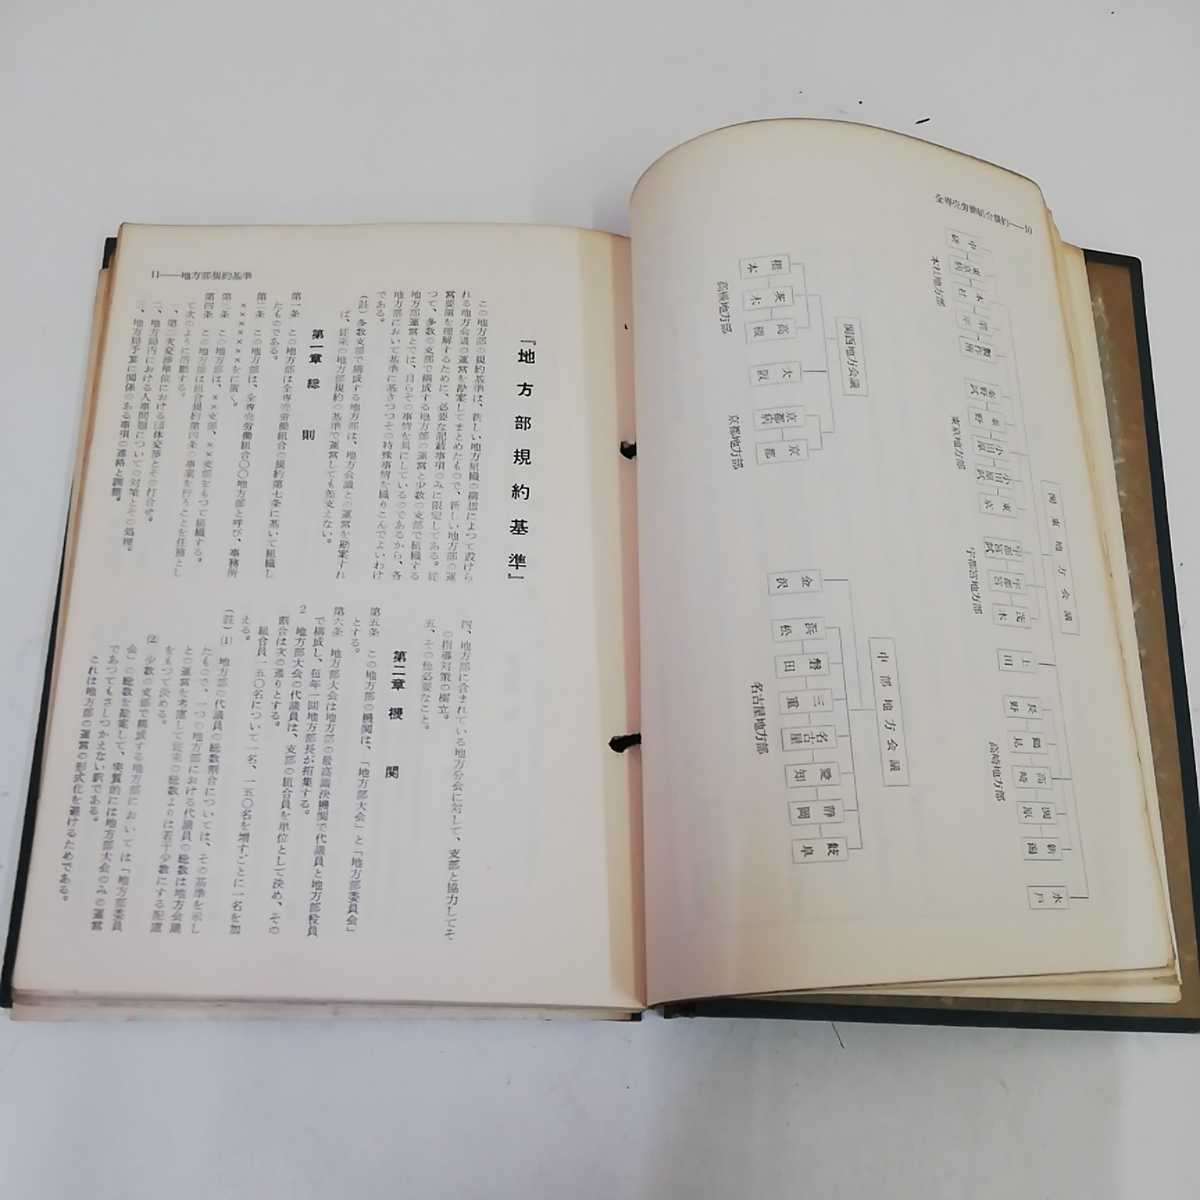 全専売労働組合規約――10
関東地方会議
本社地方部
東京地方部
宇都宮地方部
上田
高崎地方部
水戸
中部地方会議
金沢
浜松
磐田
三重
名古屋
愛知
静岡
岐阜
名古屋地方部
関西地方会議
高槻
大阪
京都病
京都
京都地方部
11――地方部規約基準
『地方部規約基準』
この地方部の規約基準は、新しい地方組織の構想によつて設けら
れる地方会議の運営を勘案してまとめたもので、新しい地方部の運
営要領を理解するために、必要な記載事項のみに限定してある。従
つて、多数の支部で構成する地方部の運営と少数の支部で組織する
地方部運営とでは、自らその事情を異にしているのであるから、各
地方部において基準に基きつつその特殊事情を織りこんでよいわけ
である。
(註) 多数支部で構成する地方部は、地方会議との運営を勘案すれ
ば、従来の地方部規約の基準で運営しても差支えない。
第一章 総則
第一条 この地方部は全専売労働組合の規約第七条に基いて組織し
たものである。
第二条 この地方部は、全専売労働組合〇〇地方部と呼び、事務所
××××××に置く。
第三条 この地方部は、××支部、××支部をもつて組織する。
第四条 この地方部は組合規約第四条の事業を行うことを任務とし
て次のように活動する。
一、第二次交渉単位における団体交渉とその打合せ。
二、地方局内における人事問題についての対策とその処理。
三、地方局予算に関係のある事項の連絡と調整。
四、地方部に含まれている地方分会に対して、支部と協力してそ
の指導対策の樹立。
五、その他必要なこと。
第二章 機関
第五条 この地方部の機関は、「地方部大会」と「地方部委員会」
とする。
第六条 地方部大会は地方部の最高議決機関で代議員と地方部役員
で構成し、毎年一回地方部長が招集する。
2 地方部大会の代議員は、支部の組合員を単位として決め、その
割合は次の通りとする。
組合員一五〇名について一名、一五〇名を増すごとに一名を加
える。
(註) (1) 地方部の代議員の総数割合については、その基準を示し
たもので、一つの地方部における代議員の総数は地方会議
との運営を考慮して従来の総数よりは若干少数にする配慮
をもつて決める。
(2) 少数の支部で構成する地方部においては「地方部委員
会」の総数を勘案して、実質的には地方部大会のみの運営
であつてもさしつかえない訳である。
これは地方部の運営の形式化を避けるためである。